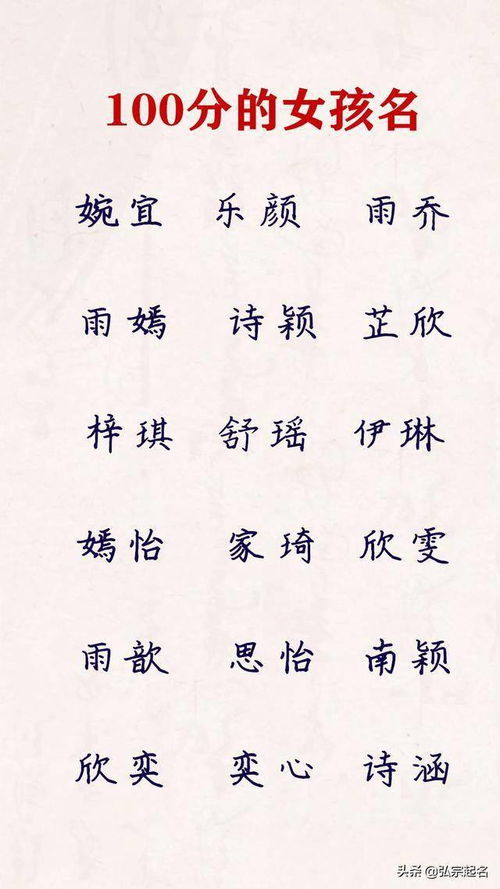 100分的女孩名
婉宜 乐颜 雨乔
雨嫣 诗颖 芷欣
梓琪 舒瑶 伊琳
嫣怡 家琦 欣雯
雨歆 思怡 南颖
欣奕 奕心 诗涵
头条 @弘宗起名